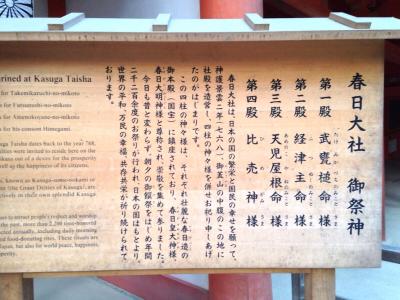 春日大社 御祭神
第一殿 武甕槌命様
第二殿 経津主命様
第三殿 天児屋根命様
第四殿 比売神様
春日大社は、日本の国の繁栄と国民の幸せを願って、
神護景雲二年(七六八)、御蓋山の中腹のこの地に
社殿を造営し、四柱の神々様を併せお祀り申しあげ
たのがはじまりです。
この四柱の神々様は、それぞれ壮麗な春日造の
御本殿(国宝)に鎮座されており、春日皇大神様、
春日大明神様と尊称され、崇敬を集めて参りました。
今日も昔と変わらず、朝夕の御饌祭をはじめ年間
二千二百余度のお祭りが行われ、日本の国はもとより、
世界の平和、万民の幸福、共存共栄が祈り続けられて
おります。
rined at Kasuga Taisha
for Takemikazuchi-no-mikoto
for Futsunushi-no-mikoto
for Amenokoyane-no-mikoto
for his consort Himegami
uga Taisha dates back to the year 768,
eities were invited to reside here on the
ikasa out of a desire for the prosperity
ell as the happiness of its citizens.
es, known as Kasuga-sume-omikami or
in (the Great Deities of Kasuga), are
ectively in their own splendid Kasuga
ues to attract people's respect and worship
the past, more than 2,200 time-honored
ducted annually, including daily morning
od-donating rites. These rituals are
apan, but also for world peace, happiness,
osperity.